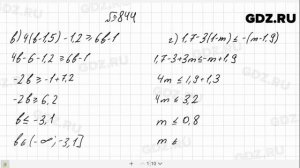 GDZ.RU
№844
в) 4(b-1,5)-1,2≥6b-1
4b-6-1,2≥6b-1
-2b≥-1+7,2
-2b≥6,2
b≤-3,1
b∈(-∞;-3,1]
г) 1,7-3(1-m)≤-(m-1,9)
1,7-3+3m≤-m+1,9
4m≤1,9+1,3
4m≤3,2
m≤0,8
m∈
- 1:10 +
GDZ.RU